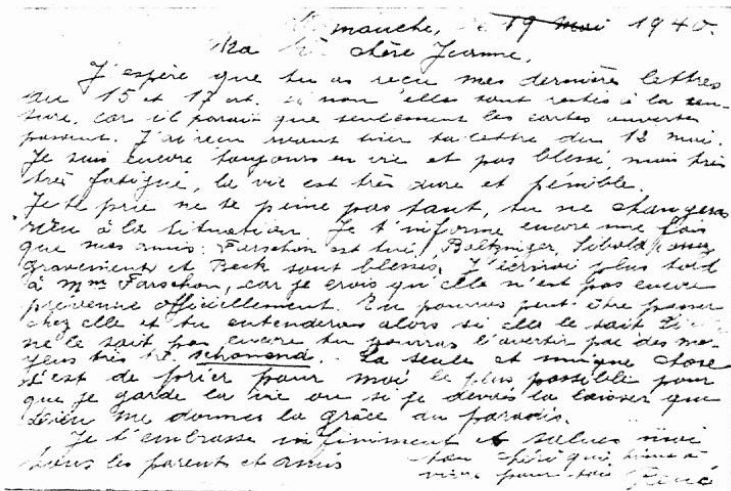 manche, le 19 Mai 1940.
Ma chère Jeanne,
J'espère que tu as reçu mes dernières lettres
du 15 et 17 crt. si non elles sont restés à la cen-
sure, car il parait que seulement les cartes ouvertes
passent. J'ai reçu avant hier ta lettre du 13 mai.
Je suis encore toujours en vie et pas blessé, mais très
très fatigué, la vie est très dure et pénible.
Je te prie ne te peine pas tant, tu ne changeras
rien à la situation. Je t'informe encore une fois
que mes amis: Farschon est tué, Boltzniger, Sibold
gravement et Beck sont blessés. J'écrirai plus tard
à Mme Farschon, car je crois qu'elle n'est pas encore
prévenue officiellement. Tu pourras peut être passer
chez elle et tu entenderas alors si elle le sait. Si
ne le sait pas encore tu pourras l'avertir par des mo-
yens très schonend. La seule et unique chose
c'est de prier pour moi le plus possible pour
que je garde la vie ou si je devais la laisser que
Dieu me donnes la grâce du paradis.
Je t'embrasse infiniment et salues moi
tiens les parents et amis ton chéri qui
vivre pour toi René